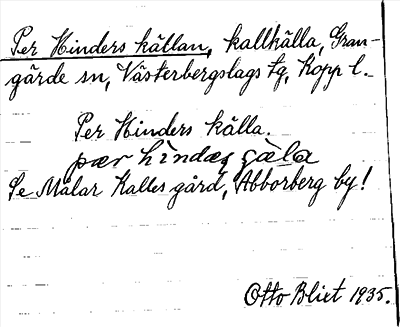 Per Hinders källan, kallkälla, Gran-
gärde sn, Västerbergslags tg, Kopp l.
Per Hinders källa.
pær hindaʂ çæla
Se Målar Kalles gård, Abborberg by!
Otto Blixt 1935.